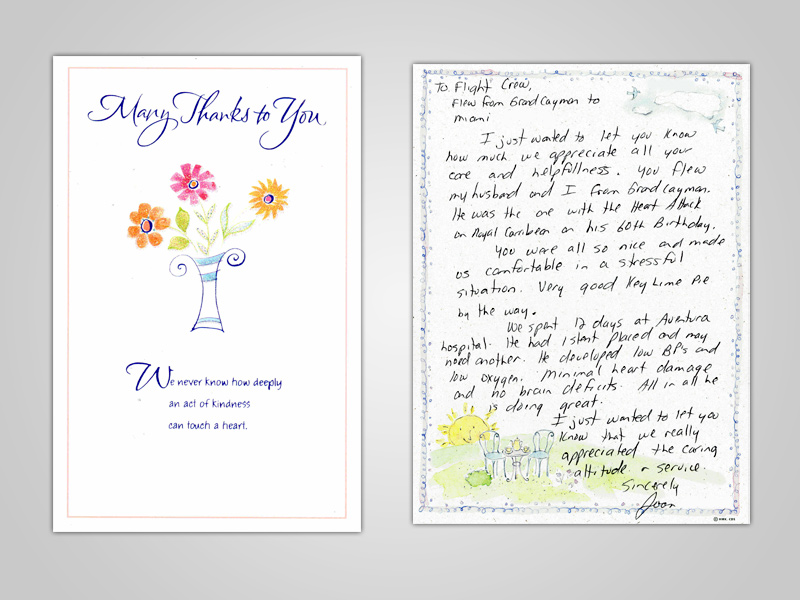 Many Thanks to You
We never know how deeply
an act of kindness
can touch a heart.
To Flight Crew,
Flew from Grand Cayman to
miami
I just wanted to let you know
how much we appreciate all your
care and helpfullness. You flew
my husband and I from Grand Cayman.
He was the one with the Heart Attack
on Royal Caribean on his 60th Birthday.
You were all so nice and made
us comfortable in a stressful
situation. Very good Key Lime Pie
by the way.
We spent 12 days at Aventura
hospital. He had 1 stent placed and may
need another. He developed low BP's and
low oxygen. Minimal heart damage
and no brain deficits. All in all he
is doing great.
I just wanted to let you
know that we really
appreciated the caring
attitude & service.
Sincerely
Joan